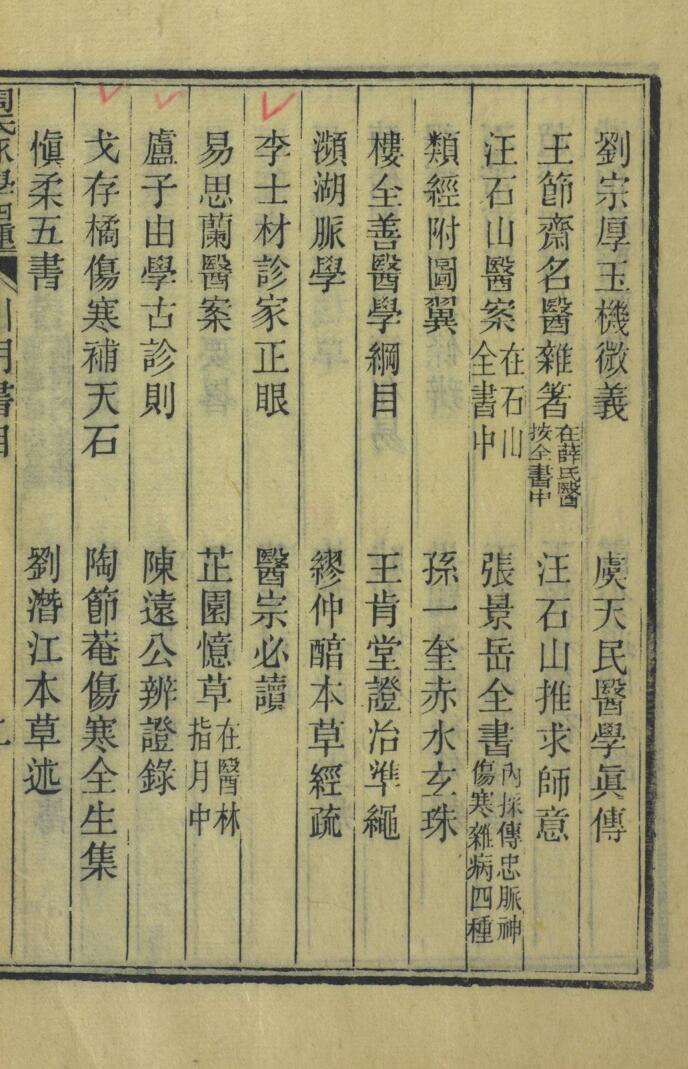 劉宗厚玉機微義　虞天民醫學眞傳
王節齋名醫雜著在薛氏醫按全書中　汪石山推求師意
汪石山醫案在石山全書中　張景岳全書內採傳忠脈神傷寒雜病四種
類經附圖翼　孫一奎赤水玄珠
樓全善醫學綱目　王肯堂證治準繩
瀕湖脈學　繆仲醕本草經疏
李士材診家正眼　醫宗必讀
易思蘭醫案　芷園憶草在醫林指月中
盧子由學古診則　陳遠公辨證錄
戈存橘傷寒補天石　陶節菴傷寒全生集
愼柔五書　劉潛江本草述